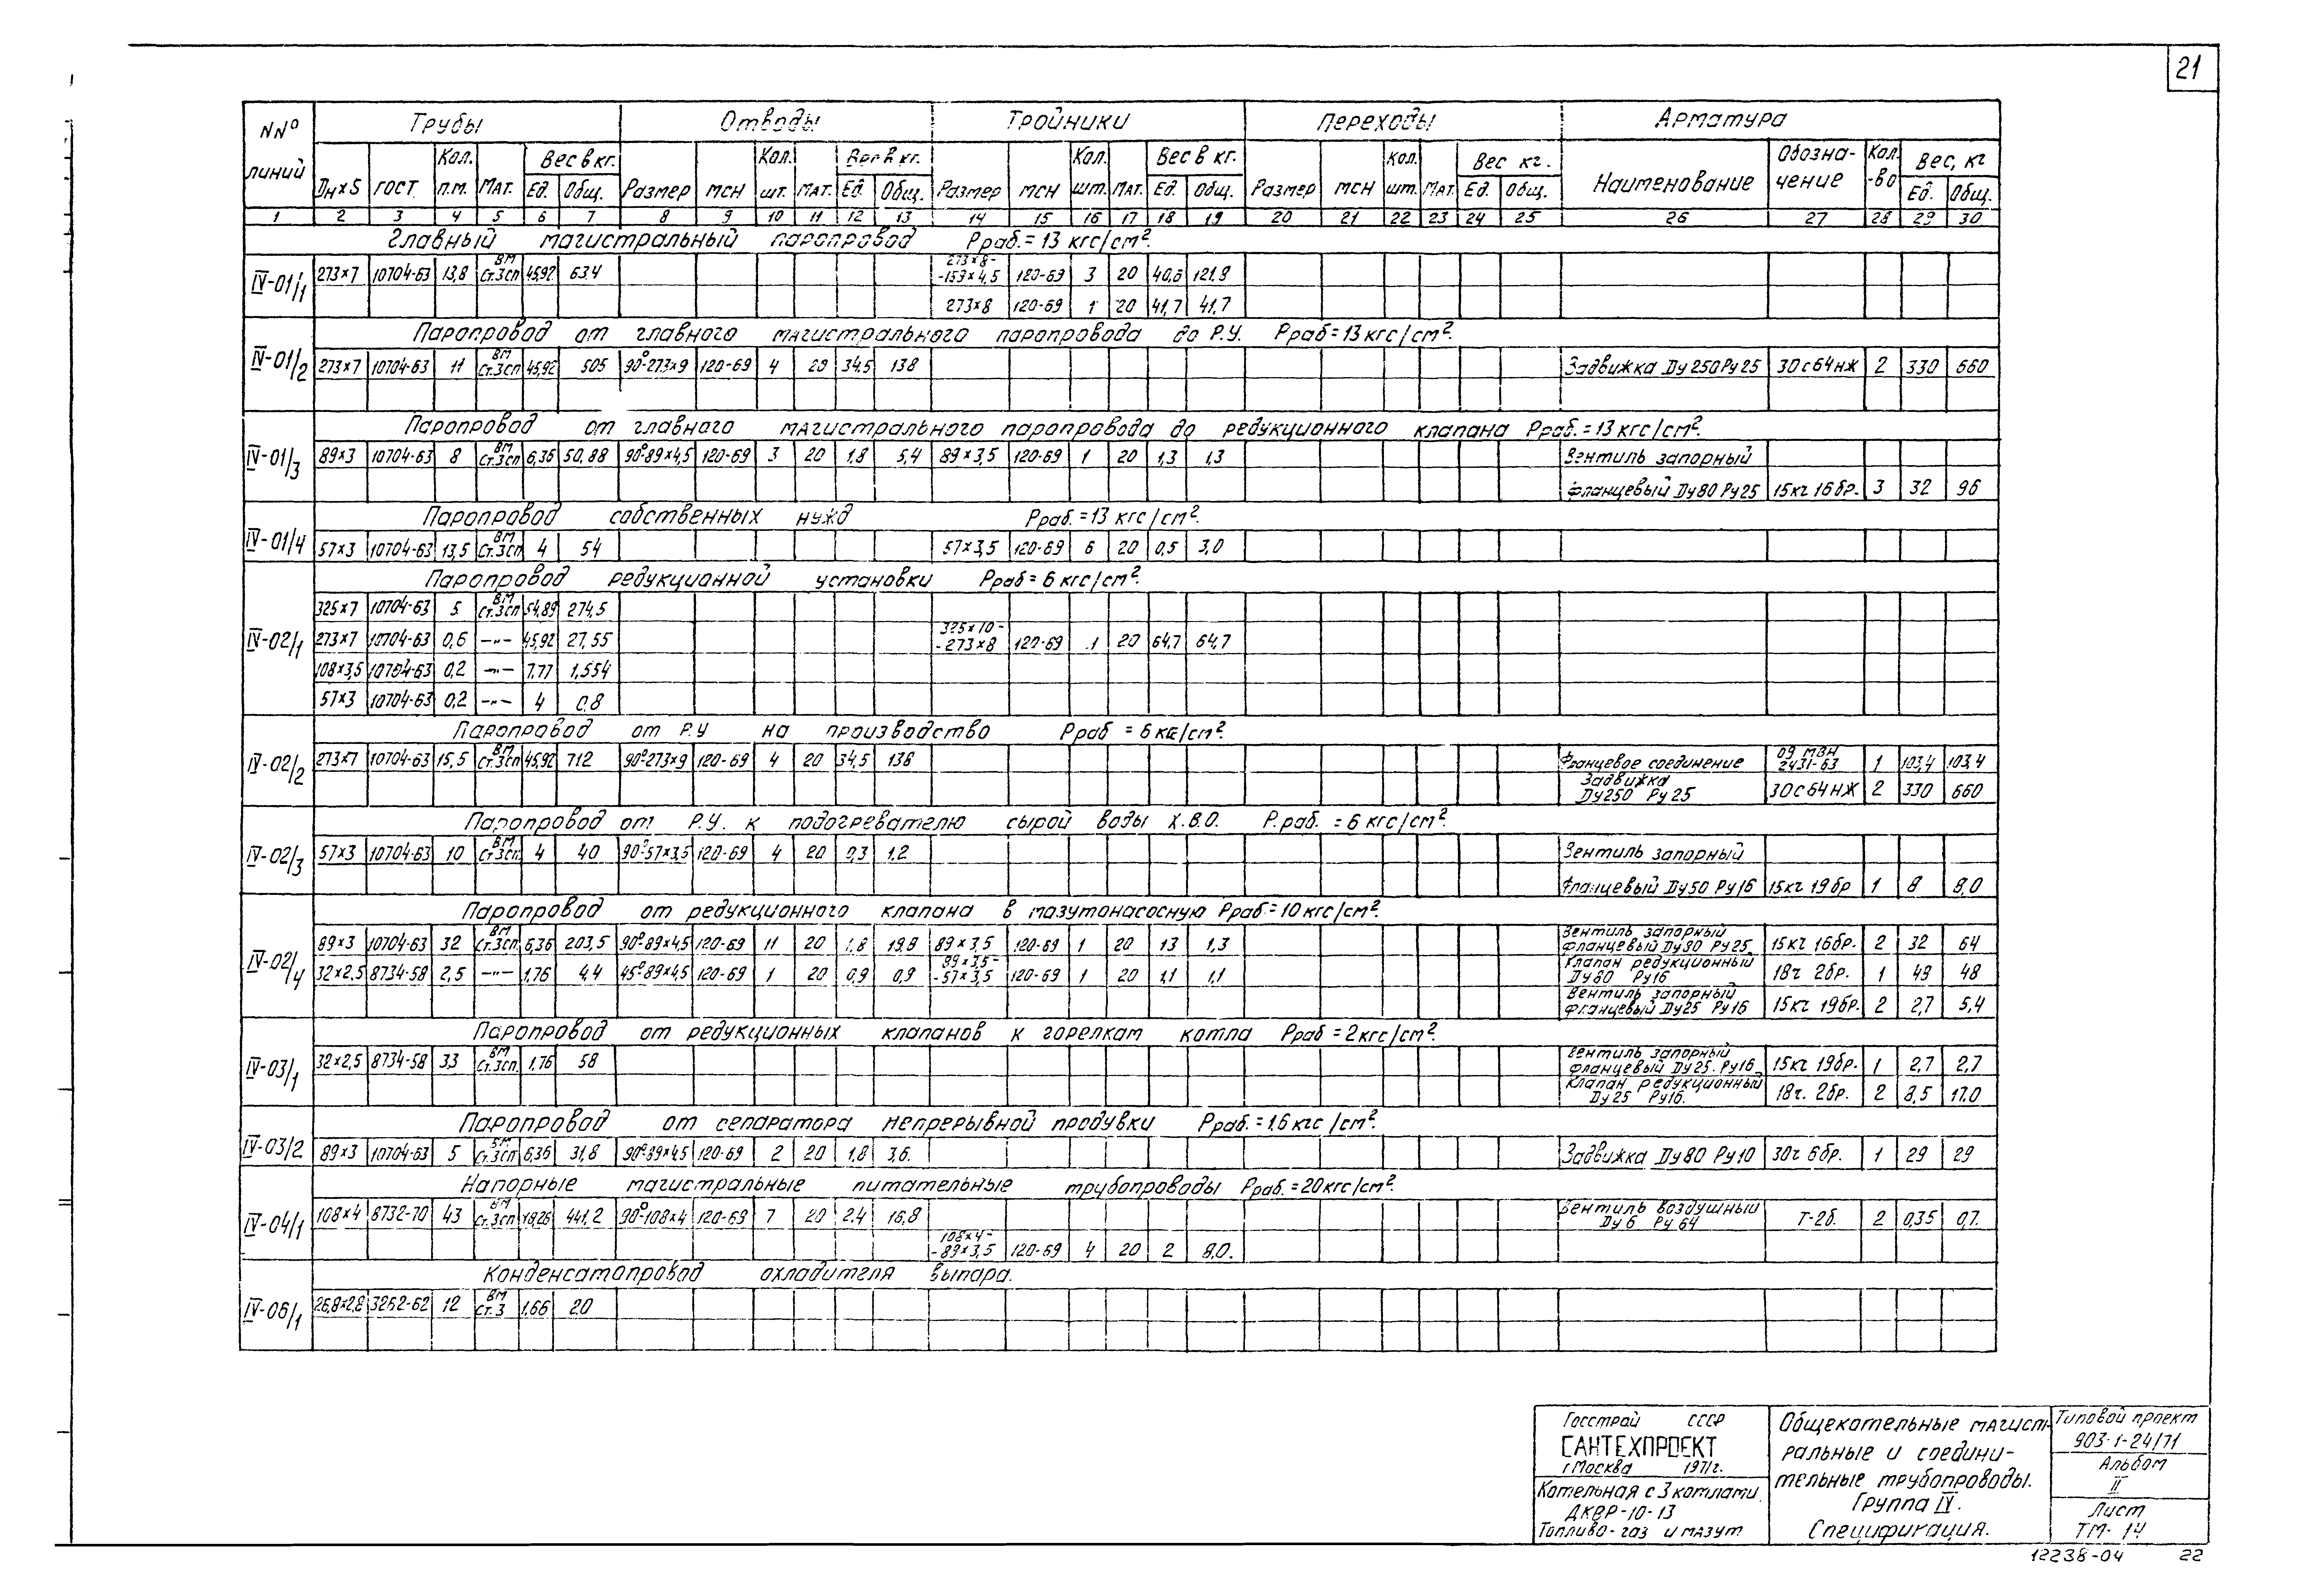 21
NNº линий Трубы Отводы Тройники Переходы Арматура
Dн×S ГОСТ Кол. п.м. Мат. Вес в кг. Ед. Общ. Размер МСН Кол. шт. Мат. Вес в кг. Ед. Общ. Размер МСН Кол. шт. Мат. Вес в кг. Ед. Общ. Размер МСН Кол. шт. Мат. Вес кг. Ед. Общ. Наименование Обозна-чение Кол-во Вес, кг Ед. Общ.
1 2 3 4 5 6 7 8 9 10 11 12 13 14 15 16 17 18 19 20 21 22 23 24 25 26 27 28 29 30
Главный магистральный паропровод Рраб.=13 кгс/см².
IV-01/1 273×7 10704-63 13,8 ВМ Ст.3сп 45,92 634 273×8--159×4,5 120-69 3 20 40,6 121,9
273×8 120-69 1 20 41,7 41,7
Паропровод от главного магистрального паропровода до Р.У. Рраб=13 кгс/см².
IV-01/2 273×7 10704-63 11 ВМ Ст.3сп 45,92 505 90°-273×9 120-69 4 20 34,5 138 Задвижка Dу 250 Ру 25 30с64нж 2 330 660
Паропровод от главного магистрального паропровода до редукционного клапана Рраб.=13 кгс/см².
IV-01/3 89×3 10704-63 8 ВМ Ст.3сп 6,36 50,88 90°-89×4,5 120-69 3 20 1,8 5,4 89×3,5 120-69 1 20 1,3 1,3 Вентиль запорный
фланцевый Dу80 Ру25 15кч 16бр. 3 32 96
Паропровод собственных нужд Рраб.=13 кгс/см².
IV-01/4 57×3 10704-63 13,5 ВМ Ст.3сп 4 54 57×3,5 120-69 6 20 0,5 3,0
Паропровод редукционной установки Рраб=6 кгс/см².
IV-02/1 325×7 10704-63 5 ВМ Ст.3сп 54,89 274,5
273×7 10704-63 0,6 —"— 45,92 27,55 325×10--273×8 120-69 1 20 64,7 64,7
108×3,5 10704-63 0,2 —"— 7,77 1,554
57×3 10704-63 0,2 —"— 4 0,8
Паропровод от Р.У на производство Рраб = 6 кгс/см².
IV-02/2 273×7 10704-63 15,5 ВМ Ст.3сп 45,92 712 90°-273×9 120-69 4 20 34,5 138 Фланцевое соединение 09 МВН 2431-63 1 103,4 103,4
Задвижка Dу250 Ру 25 30с64нж 2 330 660
Паропровод от Р.У. к подогревателю сырой воды Х.В.О. Р.раб. = 6 кгс/см².
IV-02/3 57×3 10704-63 10 ВМ Ст.3сп. 4 40 90°-57×3,5 120-69 4 20 0,3 1,2 Вентиль запорный
Фланцевый Dу50 Ру16 15кч 19бр 1 8 8,0
Паропровод от редукционного клапана в мазутонасосную Рраб=10 кгс/см².
IV-02/4 89×3 10704-63 32 ВМ Ст.3сп. 6,36 203,5 90°-89×4,5 120-69 11 20 1,8 19,8 89×3,5 120-69 1 20 1,3 1,3 Вентиль запорный фланцевый Dу80 Ру25 15кч 16бр. 2 32 64
32×2,5 8734-58 2,5 —"— 1,76 4,4 45°-89×4,5 120-69 1 20 0,9 0,9 89×3,5--57×3,5 120-69 1 20 1,1 1,1 Клапан редукционный Dу80 Ру16 18ч 2бр. 1 48 48
Вентиль запорный фланцевый Dу25 Ру16 15кч 19бр. 2 2,7 5,4
Паропровод от редукционных клапанов к горелкам котла Рраб=2кгс/см².
IV-03/1 32×2,5 8734-58 33 ВМ Ст.3сп. 1,76 58 Вентиль запорный фланцевый Dу25. Ру16 15кч 19бр. 1 2,7 2,7
Клапан редукционный Dу25 Ру16. 18ч. 2бр. 2 8,5 17,0
Паропровод от сепаратора непрерывной продувки Рраб.=1,6 кгс/см².
IV-03/2 89×3 10704-63 5 ВМ Ст.3сп 6,36 31,8 90°-89×4,5 120-69 2 20 1,8 3,6. Задвижка Dу80 Ру10 30ч 6бр. 1 29 29
Напорные магистральные питательные трубопроводы Рраб.=20 кгс/см².
IV-04/1 108×4 8732-70 43 ВМ Ст.3сп 10,26 441,2 90°-108×4 120-69 7 20 2,4 16,8 Вентиль воздушный Dу6 Ру 64 Т-2б. 2 0,35 0,7.
108×4--89×3,5 120-69 4 20 2 8,0.
Конденсатопровод охладителя выпара.
IV-06/1 26,8×2,8 3262-62 12 ВМ Ст.3 1,66 20
Госстрай СССР
САНТЕХПРОЕКТ
г.Москва 1971г.
Котельная с 3 котлами
ДКВР-10-13
Топливо-газ и мазут
Общекотельные магист-
ральные и соедини-
тельные трубопроводы.
Группа IV.
Спецификация.
Типовой проект
903-1-24/71
Альбом
II
Лист
ТМ-14
12238-04 22